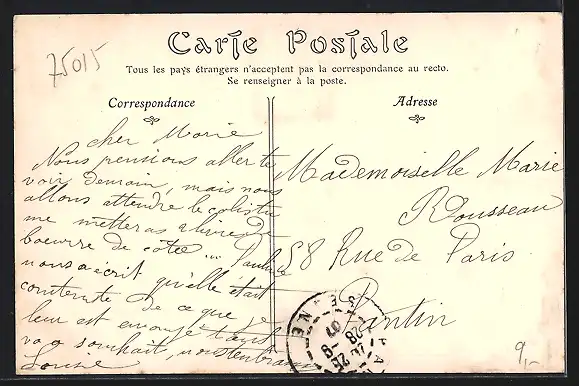 75015
Carte Postale
Tous les pays étrangers n'acceptent pas la correspondance au recto.
Se renseigner à la poste.
Correspondance
Adresse
cher Marie
Nous pensions aller te
voir demain, mais nous
allons attendre le colis tu
me metteras a livre de
boeurre de côtée ... Pauline
nous a écrit qu'elle était
contente de ce que je
leur est envoyé
va a souhait, nous t'embrassons
Louise
Mademoiselle Marie
Rousseau
58 Rue de Paris
Pantin
SEINE
PAN
28
07
9,-